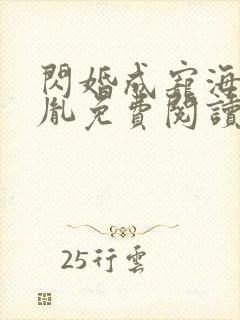 閃婚成寵海
胤免費閱讀
25行雲